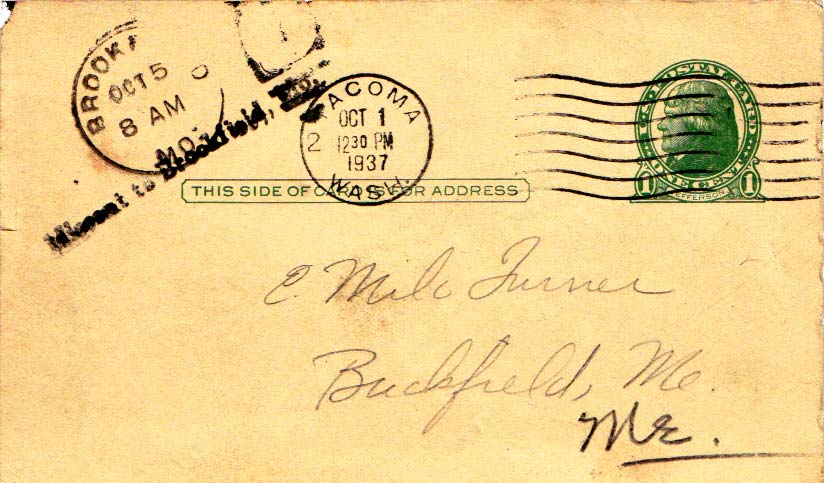 BROOKF
OCT 5
8 AM
MO.
Missent to Brookfield, Mo.
TACOMA
OCT 1
1230 PM
1937
WASH.
2
U.S. POSTAL CARD
1 ONE CENT 1
JEFFERSON
THIS SIDE OF CARD IS FOR ADDRESS
C. Milo Turner
Buckfield, Me.
ME.